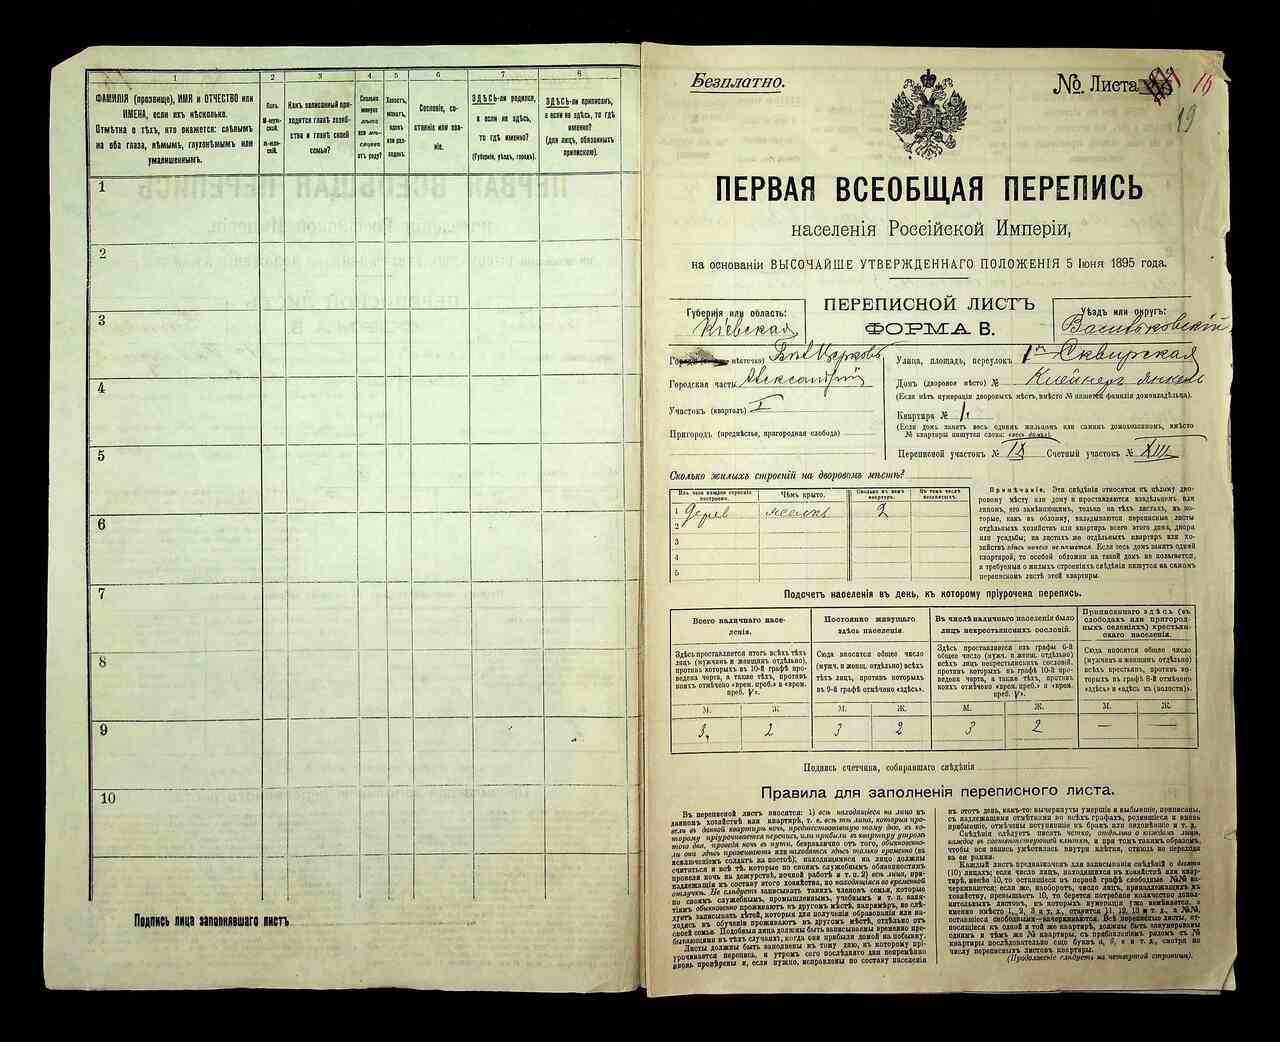 1
2
3
4
5
6
7
8
ФАМИЛІЯ (прозвище), ИМЯ и ОТЧЕСТВО или
ИМЕНА, если ихъ нѣсколько.
Отмѣтка о тѣхъ, кто окажется: слѣпымъ
на оба глаза, нѣмымъ, глухонѣмымъ или
умалишеннымъ.
Полъ.
М-муж-
ской.
Ж-жен-
скій.
Какъ записанный при-
ходится главѣ хозяй-
ства и главѣ своей
семьи?
Сколько
минуло
лѣтъ
или мѣ-
сяцевъ
отъ роду?
Холостъ,
женатъ,
вдовъ
или раз-
веденъ.
Сословіе, со-
стояніе или зва-
ніе.
ЗДѢСЬ-ли родился,
а если не здѣсь,
то гдѣ именно?
(Губернія, уѣздъ, городъ).
ЗДѢСЬ-ли приписанъ,
а если не здѣсь, то гдѣ
именно?
(для лицъ, обязанныхъ
припискою).
1
2
3
4
5
6
7
8
9
10
Подпись лица заполнявшаго листъ
Безплатно.
№ Листа 16
19
ПЕРВАЯ ВСЕОБЩАЯ ПЕРЕПИСЬ
населенія Россійской Имперіи,
на основаніи ВЫСОЧАЙШЕ УТВЕРЖДЕННАГО ПОЛОЖЕНІЯ 5 Іюня 1895 года.
ПЕРЕПИСНОЙ ЛИСТЪ
ФОРМА В.
Губернія или область:
Кіевская
Уѣздъ или округъ:
Васильковскій
Городъ мѣстечко) Бѣл Церковь
Городская часть Александрій
Участокъ (кварталъ) I
Пригородъ (предмѣстье, пригородная слобода)
Улица, площадь, переулокъ 1я Сквирская
Домъ (дворовое мѣсто) № Клейнеръ Янкель
(Если нѣтъ нумераціи дворовыхъ мѣстъ, вмѣсто № пишется фамилія домовладѣльца).
Квартира № 1
(Если домъ занятъ весь однимъ жильцомъ или самимъ домохозяиномъ, вмѣсто
№ квартиры пишутся слова: «весь домъ»).
Переписной участокъ № IX Счетный участокъ № XIII
Сколько жилыхъ строеній на дворовомъ мѣстѣ?
Изъ чего каждое строеніе
построено.
Чѣмъ крыто.
Сколько въ немъ
квартиръ.
Въ томъ числѣ
незанятыхъ.
1 Дерев 2
2
3
4
5
Примѣчаніе. Эти свѣдѣнія относятся къ цѣлому дво-
ровому мѣсту или дому и проставляются владѣльцемъ или
лицомъ, его замѣняющимъ, только на тѣхъ листахъ, въ ко-
торые, какъ въ обложку, вкладываются переписные листы
отдѣльныхъ хозяйствъ или квартиръ всего этого дома, двора
или усадьбы; на листахъ же отдѣльныхъ квартиръ или хо-
зяйствъ здѣсь ничего не пишется. Если весь домъ занятъ одной
квартирой, то особой обложки на такой домъ не полагается,
а требуемыя о жилыхъ строеніяхъ свѣдѣнія пишутся на самомъ
переписномъ листѣ этой квартиры.
Подсчетъ населенія въ день, къ которому пріурочена перепись.
Всего наличнаго насе-
ленія.
Постоянно живущаго
здѣсь населенія.
Въ числѣ наличнаго населенія было
лицъ некрестьянскихъ сословій.
Приписаннаго здѣсь (въ
слободахъ или пригород-
ныхъ селеніяхъ) крестьян-
скаго населенія.
Здѣсь проставляется итогъ всѣхъ тѣхъ
лицъ (мужчинъ и женщинъ отдѣльно),
противъ которыхъ въ 10-й графѣ про-
ведена черта, а также тѣхъ, противъ
коихъ отмѣчено «врем. преб.» и «врем.
преб. V».
Сюда вносится общее число
(мужч. и женщ. отдѣльно) всѣхъ
тѣхъ лицъ, противъ которыхъ
въ 9-й графѣ отмѣчено «здѣсь».
Здѣсь проставляется изъ графы 6-й
общее число (мужч. и женщ. отдѣльно)
всѣхъ лицъ некрестьянскихъ сословій,
противъ которыхъ въ графѣ 10-й прове-
дена черта, а также тѣхъ, противъ
коихъ отмѣчено «врем. преб.» и «врем.
преб. V».
Сюда вносится общее число
(мужчинъ и женщинъ отдѣльно)
всѣхъ крестьянъ, противъ ко-
торыхъ въ графѣ 8-й отмѣчено
«здѣсь» и «здѣсь къ (волости)».
М. Ж. М. Ж. М. Ж. М. Ж.
3 2 3 2 3 2 — —
Подпись счетчика, собиравшаго свѣдѣнія
Правила для заполненія переписного листа.
Въ переписной листъ вносятся: 1) всѣ находящіеся на лицо въ
данномъ хозяйствѣ или квартирѣ, т. е. всѣ тѣ лица, которыя про-
вели въ данной квартирѣ ночь, предшествовавшую тому дню, къ ко-
торому пріурочивается перепись, или прибыли въ квартиру утромъ
того дня, проведя ночь въ пути, безразлично отъ того, обыкновен-
но ли они здѣсь проживаютъ или находятся здѣсь только временно (за
исключеніемъ солдатъ на постоѣ); находящимися на лицо должны
считаться и всѣ тѣ, которые по своимъ служебнымъ обязанностямъ
провели ночь на дежурствѣ, ночной работѣ и т. п. 2) всѣ лица, при-
надлежащія къ составу этого хозяйства, но находящіеся въ временной
отлучкѣ. Не слѣдуетъ записывать такихъ членовъ семьи, которые
по своимъ служебнымъ, промышленнымъ, учебнымъ и т. п. заня-
тіямъ обыкновенно проживаютъ въ другомъ мѣстѣ, напримѣръ, не слѣ-
дуетъ записывать дѣтей, которыя для полученія образованія или на-
ходясь въ обученіи проживаютъ въ другомъ мѣстѣ, отдѣльно отъ
своей семьи. Подобныя лица должны быть записываемы временно пре-
бывающими въ тѣхъ случаяхъ, когда они прибыли домой на побывку.
Листы должны быть заполнены къ тому дню, къ которому прі-
урочивается перепись, и утромъ сего послѣдняго дня непремѣнно
вновь провѣрены и, если нужно, исправлены по составу населенія
въ этотъ день, какъ-то: вычеркнуты умершіе и выбывшіе, приписаны,
съ надлежащими отмѣтками во всѣхъ графахъ, родившіеся и вновь
прибывшіе, отмѣчены вступившіе въ бракъ или овдовѣвшіе и т. д.
Свѣдѣнія слѣдуетъ писать четко, отдѣльно о каждомъ лицѣ,
каждое въ соотвѣтствующей клѣткѣ, и при томъ такимъ образомъ,
чтобы вся запись умѣстилась внутри клѣтки, отнюдь не переходя
за ея рамки.
Каждый листъ предназначенъ для записыванія свѣдѣній о десяти
(10) лицахъ; если число лицъ, находящихся въ хозяйствѣ или квар-
тирѣ, менѣе 10, то оставшіеся въ первой графѣ свободные №№ за-
черкиваются; если же, наоборотъ, число лицъ, принадлежащихъ къ
хозяйству, превышаетъ 10, то берется потребное количество допол-
нительныхъ листовъ, въ которыхъ нумерація уже измѣняется, а
именно вмѣсто 1, 2, 3 и т. д., ставится 11, 12, 13 и т. д., а №№,
остающіеся свободными—зачеркиваются. Всѣ переписные листы, от-
носящіеся къ одной и той же квартирѣ, должны быть занумерованы
однимъ и тѣмъ же № квартиры, съ прибавленіемъ рядомъ съ №
квартиры послѣдовательно еще буквъ а, б, в и т. д., смотря по
числу переписныхъ листовъ квартиры.
(Продолженіе слѣдуетъ на четвертой страницѣ).